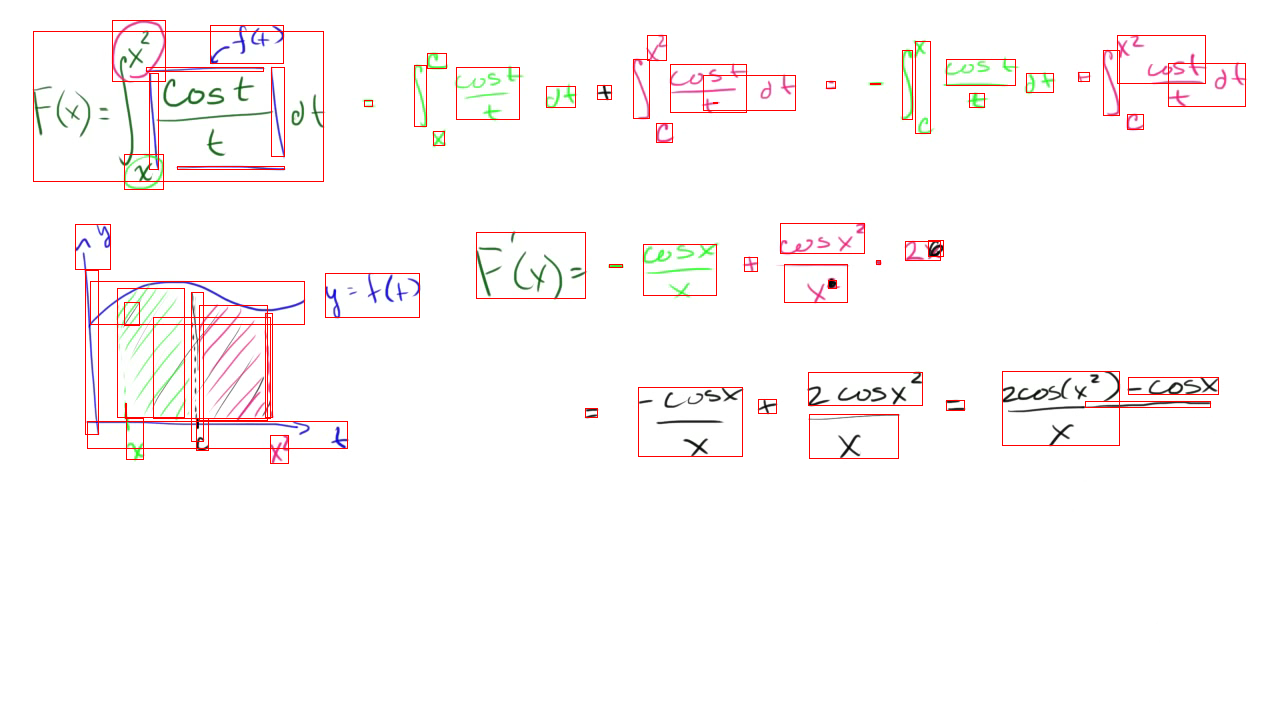 F(x) = ∫_x^{x²} [cos t / t] dt = ∫_x^c cos t / t dt + ∫_c^{x²} cos t / t dt = - ∫_c^x cos t / t dt + ∫_c^{x²} cos t / t dt
f(t)
F'(x) = - cos x / x + cos x² / x · 2
y
y = f(t)
= -cos x / x + 2 cos x² / x = 2cos(x²) - cos x / x
x c x² t